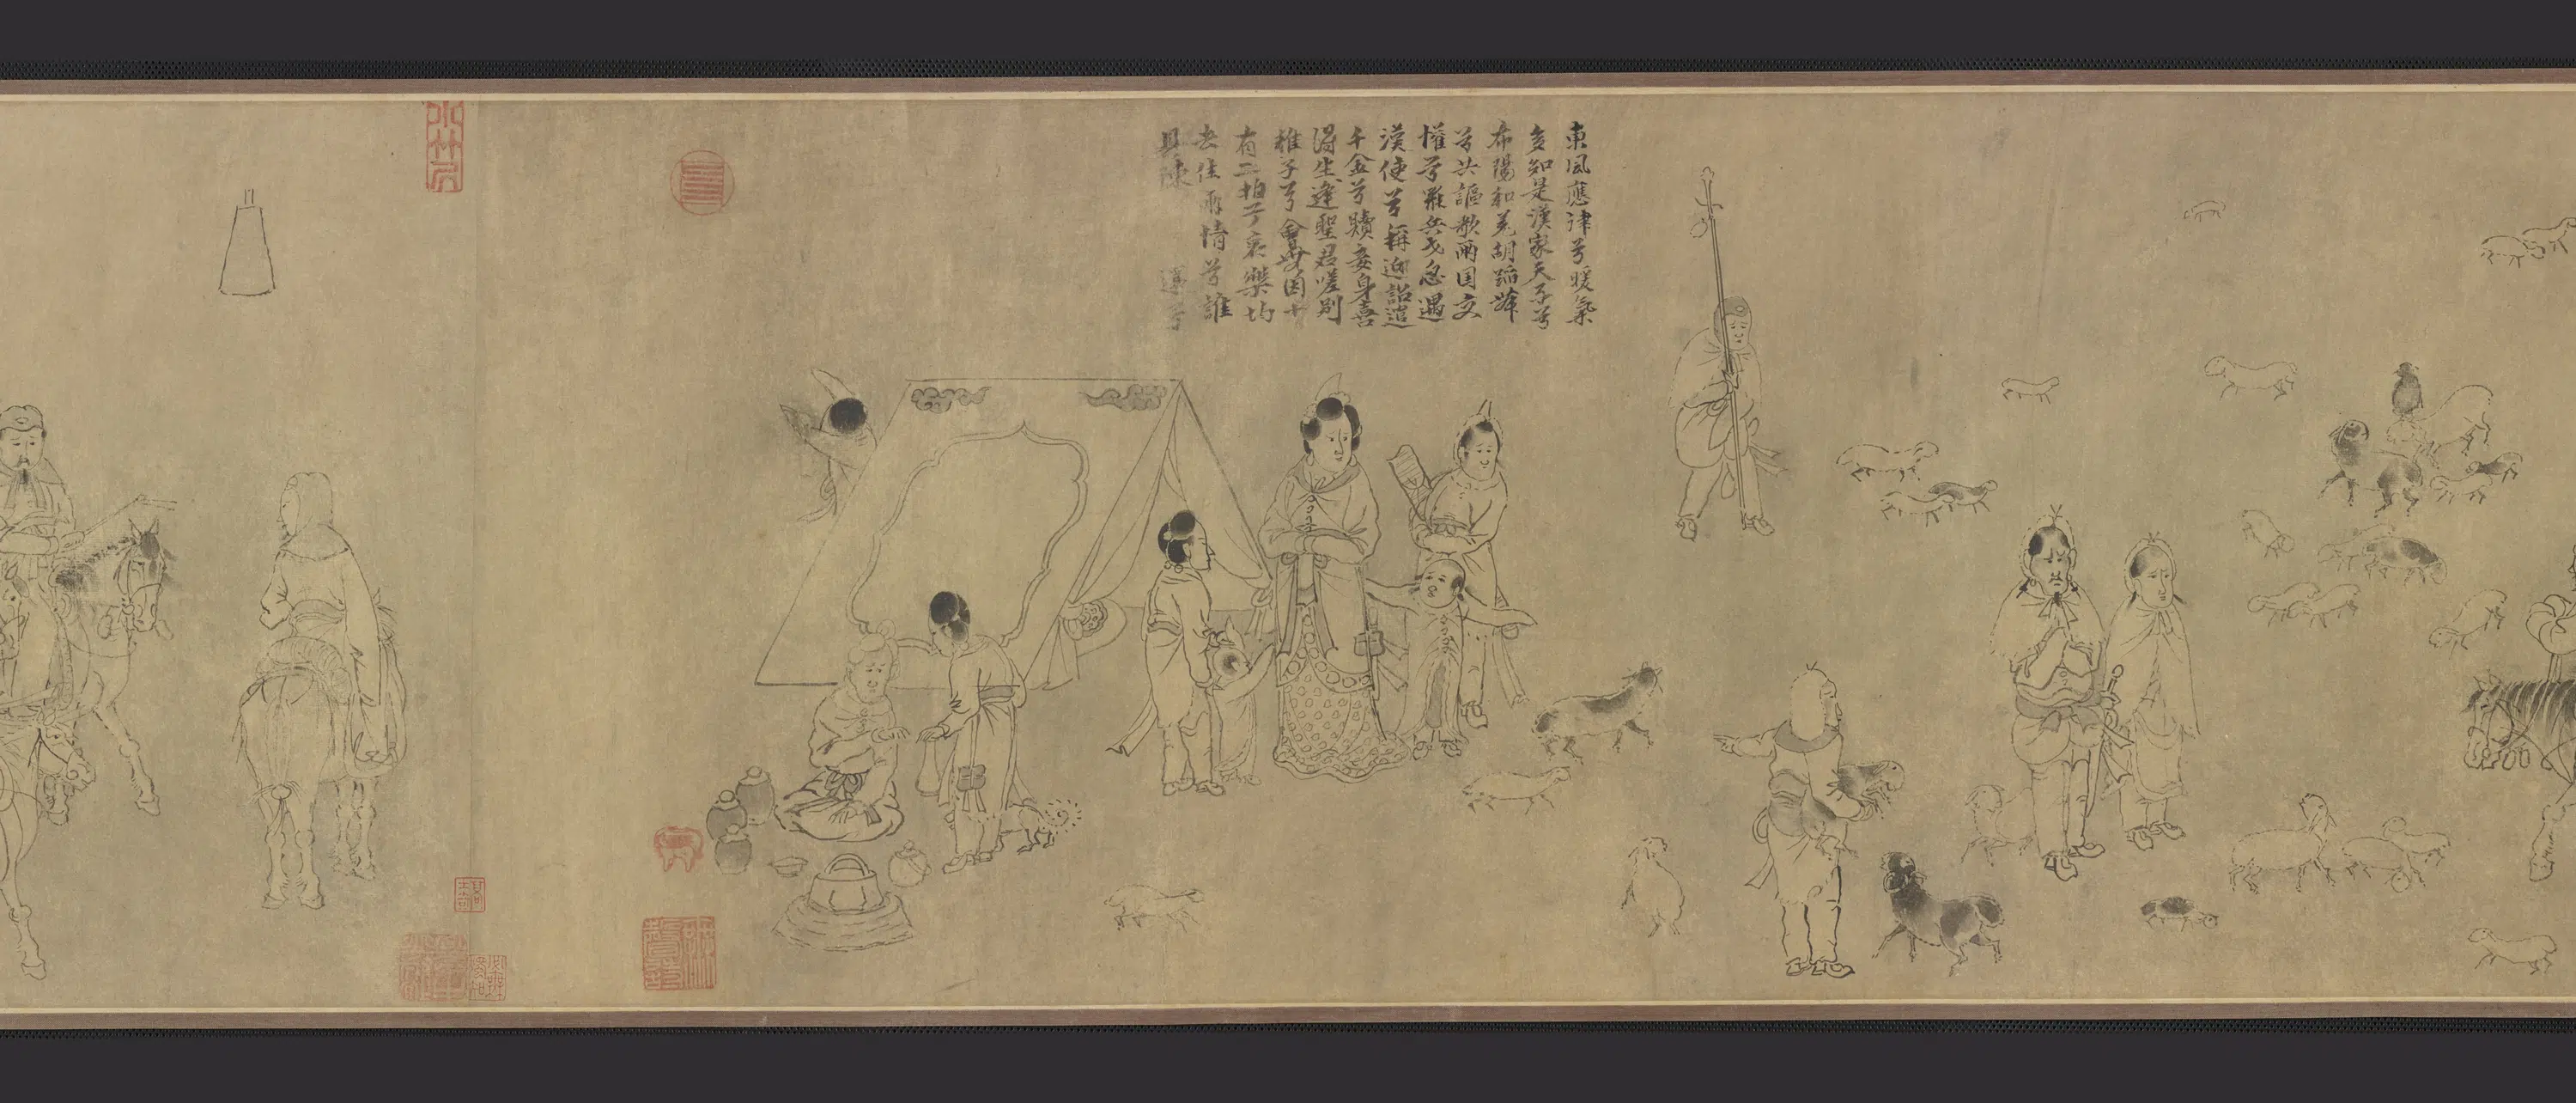 東風應律兮暖氣
多知是漢家天子兮
布陽和羌胡蹈舞
兮共謳歌兩国交
懽兮罷兵戈忽遇
漢使兮稱近詔遣
千金兮贖妾身喜
得生還兮逢聖君嗟別
稚子兮會無因十
有二拍兮哀樂均
去住兩情兮誰
具陳